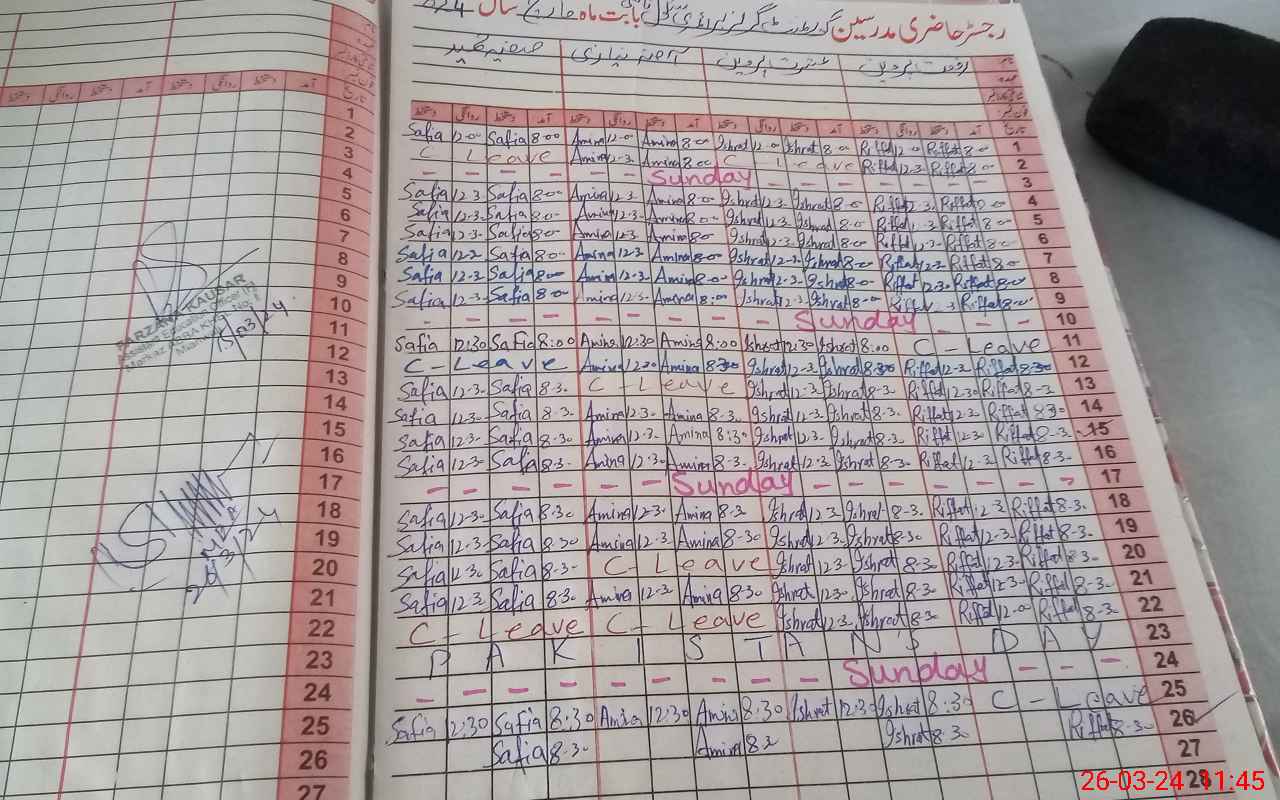 رجسٹر حاضری مدرسین گورنمنٹ گرلز بابت ماہ مارچ سال 024
رفعت پروین عشرت پروین آمنہ نیازی صفیہ
تاریخ آمد دستخط روانگی دستخط آمد دستخط روانگی دستخط آمد دستخط روانگی دستخط آمد دستخط روانگی دستخط
Safia 12-00 Safia 8-00 Amina 12-0 Amina 8-00 Ishrat 12-0 Ishrat 8-00 Riffat 12-0 Riffat 8-00 1
C - Leave Amina 12-3- Amina 8-00 C - Leave Riffat 12-3- Riffat 8-00 2
- - - Sunday - - - - 3
Safia 12-3 Safia 8-00 Amina 12-3- Amina 8-0- Ishrat 12-3- Ishrat 8-0- Riffat 12-3- Riffat 8-0- 4
Safia 12-3- Safia 8-0- Amina 12-3- Amina 8-0- Ishrat 12-3- Ishrat 8-0- Riffat 8-0- 5
Safia 12-3- Safia 8-0- Amina 12-3- Amina 8-0- Ishrat 12-3- Ishrat 8-0- Riffat 12-3- Riffat 8-0- 6
Safia Safia 8-0- Amina 12-3- Amina 8-0- Ishrat 12-3- Ishrat 8-0- Riffat 12-3- Riffat 8-0- 7
Safia 12-3 Safia 8-00 Amina 12-3- Amina 8-0- Ishrat 12-3- Ishrat 8-0- Riffat 12-3- Riffat 8-0- 8
Safia 12-3- Safia 8-0- Amina 12-3- Amina 8:00 Ishrat 12-3- Ishrat 8-0- Riffat Riffat 8-0- 9
- - - - - Sunday - - - 10
Safia 12:30 Safia 8:00 Amina 12:30 Amina 8:00 Ishrat 12:30 Ishrat 8:00 C - Leave 11
C - Leave Amina 12:30 Amina 8:30 Ishrat 12-3 Ishrat 8:30 Riffat 12-3 Riffat 8-30 12
Safia 12-3- Safia 8-3- C - Leave Ishrat 12-3- Ishrat 8-3- Riffat 12-30 Riffat 8-3- 13
Safia 12-3- Safia 8-3- Amina 12-3- Amina 8-3- Ishrat 12-3 Ishrat 8-3- Riffat 12-3 Riffat 8-30 14
Safia 12-3- Safia 8-30 Amina 12-3- Amina 8:30 Ishrat 12-3- Ishrat 8-3- Riffat 12-30 Riffat 8-3- 15
Safia 12-3 Safia 8-3- Amina 12-3- Amina 8-3- Ishrat 12-3- Ishrat 8-3- Riffat 12-3- Riffat 8-3- 16
- - - - Sunday - - - - - 17
Safia 12-3- Safia 8-30 Amina 12-3- Amina 8-3 Ishrat 12-3 Ishrat 8-3- Riffat 12-3 Riffat 8-3- 18
Safia 12-3 Safia 8-30 Amina 12-3 Amina 8-30 Ishrat 12-3- Ishrat 8-30 Riffat 12-3- Riffat 8-3- 19
Safia 12-30 Safia 8-3- C - Leave Ishrat 12-3- Ishrat 8-3- Riffat 12-3- Riffat 8-3- 20
Safia 12-3 Safia 8-30 Amina 12-3 Amina 8-30 Ishrat 12-30 Ishrat 8-3- Riffat 12-3- Riffat 8-3- 21
C - Leave C - Leave Ishrat 12-3- Ishrat 8-3- Riffat 12-00 Riffat 8-3- 22
PAKISTAN'S DAY 23
- - - - - - - Sunday - - - 24
Safia 12:30 Safia 8:30 Amina 12:30 Amina 8:30 Ishrat 12:30 Ishrat 8:30 C - Leave 25
Safia 8-3- Amina 8-3 Ishrat 8-30 Riffat 8-30 26
27
28
آمد دستخط روانگی دستخط آمد دستخط روانگی دستخط
تاریخ
1
2
3
4
5
6
7
8
9
10
11
12
13
14
15
16
17
18
19
20
21
22
23
24
25
26
27
FARZANA KAUSAR
15/03/24
26-03-24 11:45